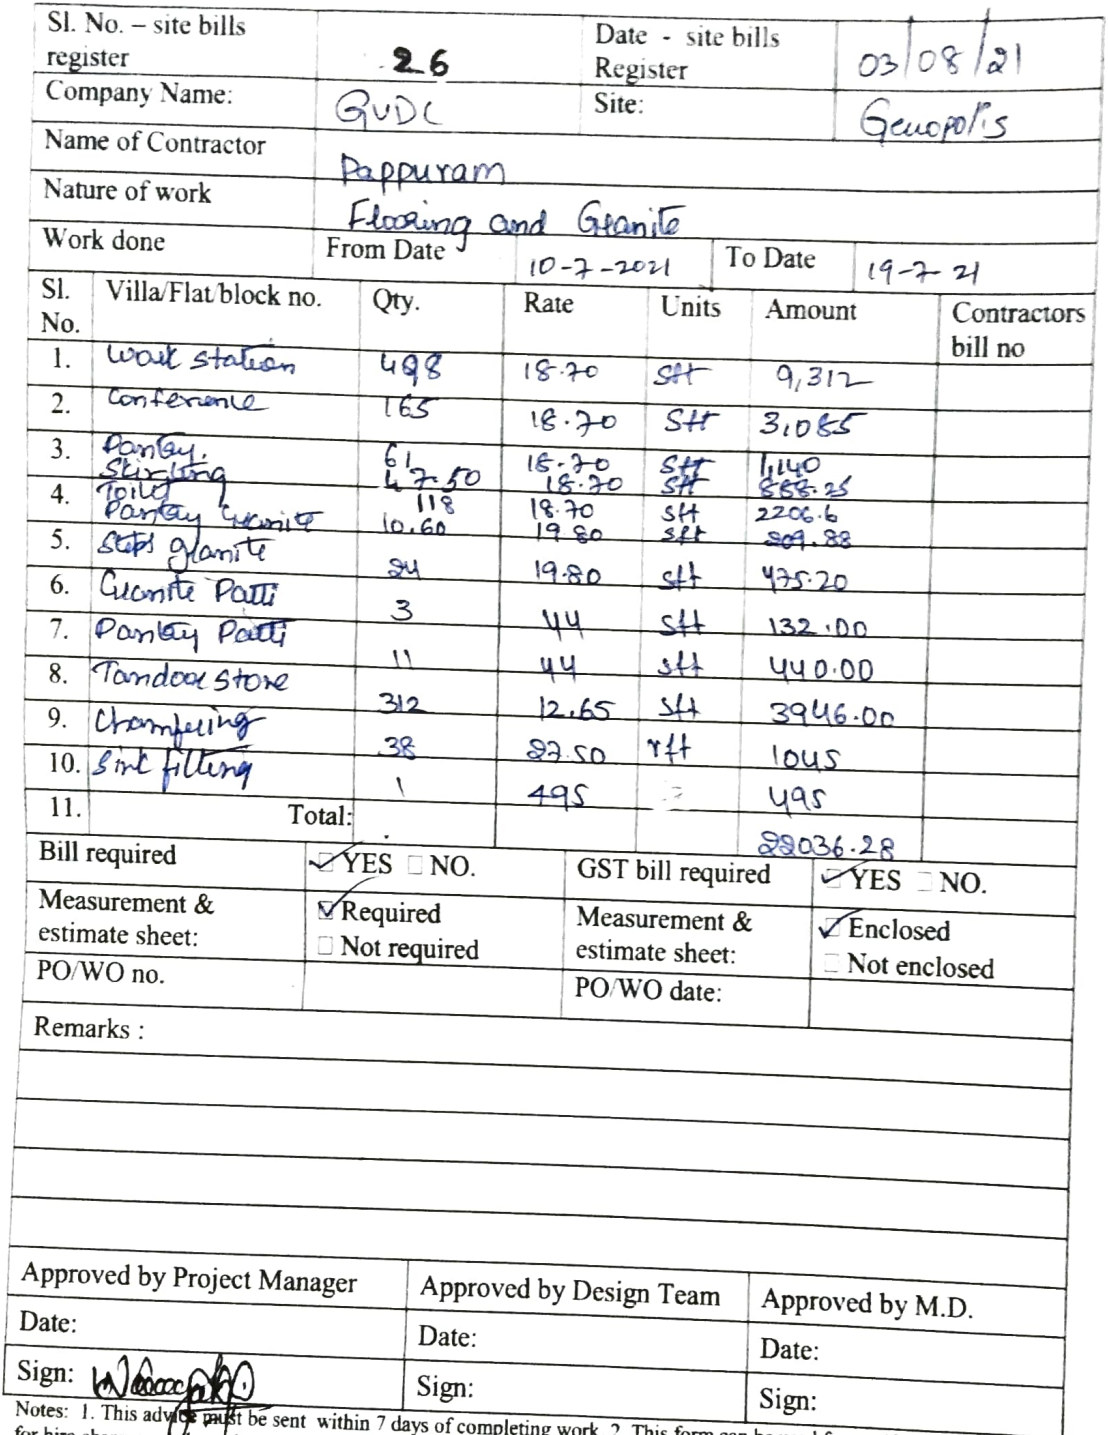 Sl. No. – site bills register 26 Date - site bills Register 03/08/21
Company Name: GVDC Site: Genopolis
Name of Contractor Pappuram
Nature of work Flooring and Granite
Work done From Date 10-7-2021 To Date 19-7-21
Sl. No. Villa/Flat/block no. Qty. Rate Units Amount Contractors bill no
1. Work station 498 18.70 Sft 9,312
2. Conference 165 18.70 Sft 3,085
3. Pantay. 61 18.70 Sft 1,140
Skirting 47.50 18.70 Sft 888.25
4. Toilet 118 18.70 Sft 2206.6
Pantay Granite 10.60 19.80 Sft 209.88
5. Steps granite 24 19.80 Sft 475.20
6. Granite Patti 3 44 Sft 132.00
7. Pantay Patti 11 44 Sft 440.00
8. Tandoor Store 312 12.65 Sft 3946.00
9. Chamfering 38 27.50 rft 1045
10. Sink fitting 1 495 495
11. Total: 22036.28
Bill required YES NO. GST bill required YES NO.
Measurement & estimate sheet: Required Not required Measurement & estimate sheet: Enclosed Not enclosed
PO/WO no. PO/WO date:
Remarks :
Approved by Project Manager Approved by Design Team Approved by M.D.
Date: Date: Date:
Sign: Sign: Sign:
Notes: 1. This advice must be sent within 7 days of completing work. 2. This form can be
for hire